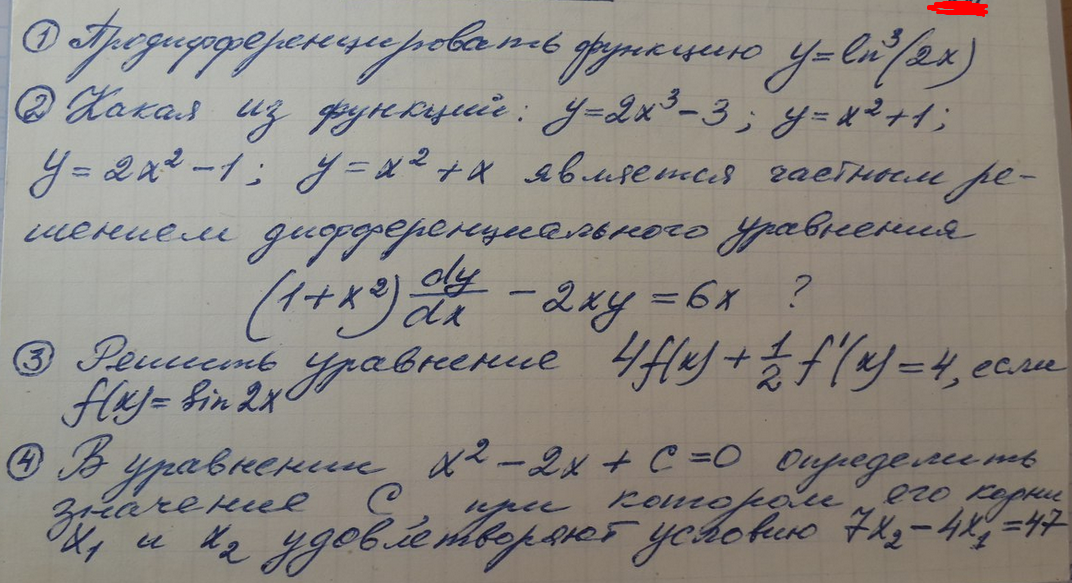 ① Продифференцировать функцию y=ln³(2x)
② Какая из функций: y=2x³-3; y=x²+1;
y=2x²-1; y=x²+x является частным ре-
шением дифференциального уравнения
(1+x²) dy/dx - 2xy = 6x ?
③ Решить уравнение 4f(x) + 1/2 f'(x) = 4, если
f(x)= sin 2x
④ В уравнении x² - 2x + C = 0 определить
значение C, при котором его корни
x₁ и x₂ удовлетворяют условию 7x₂ - 4x₁ = 47